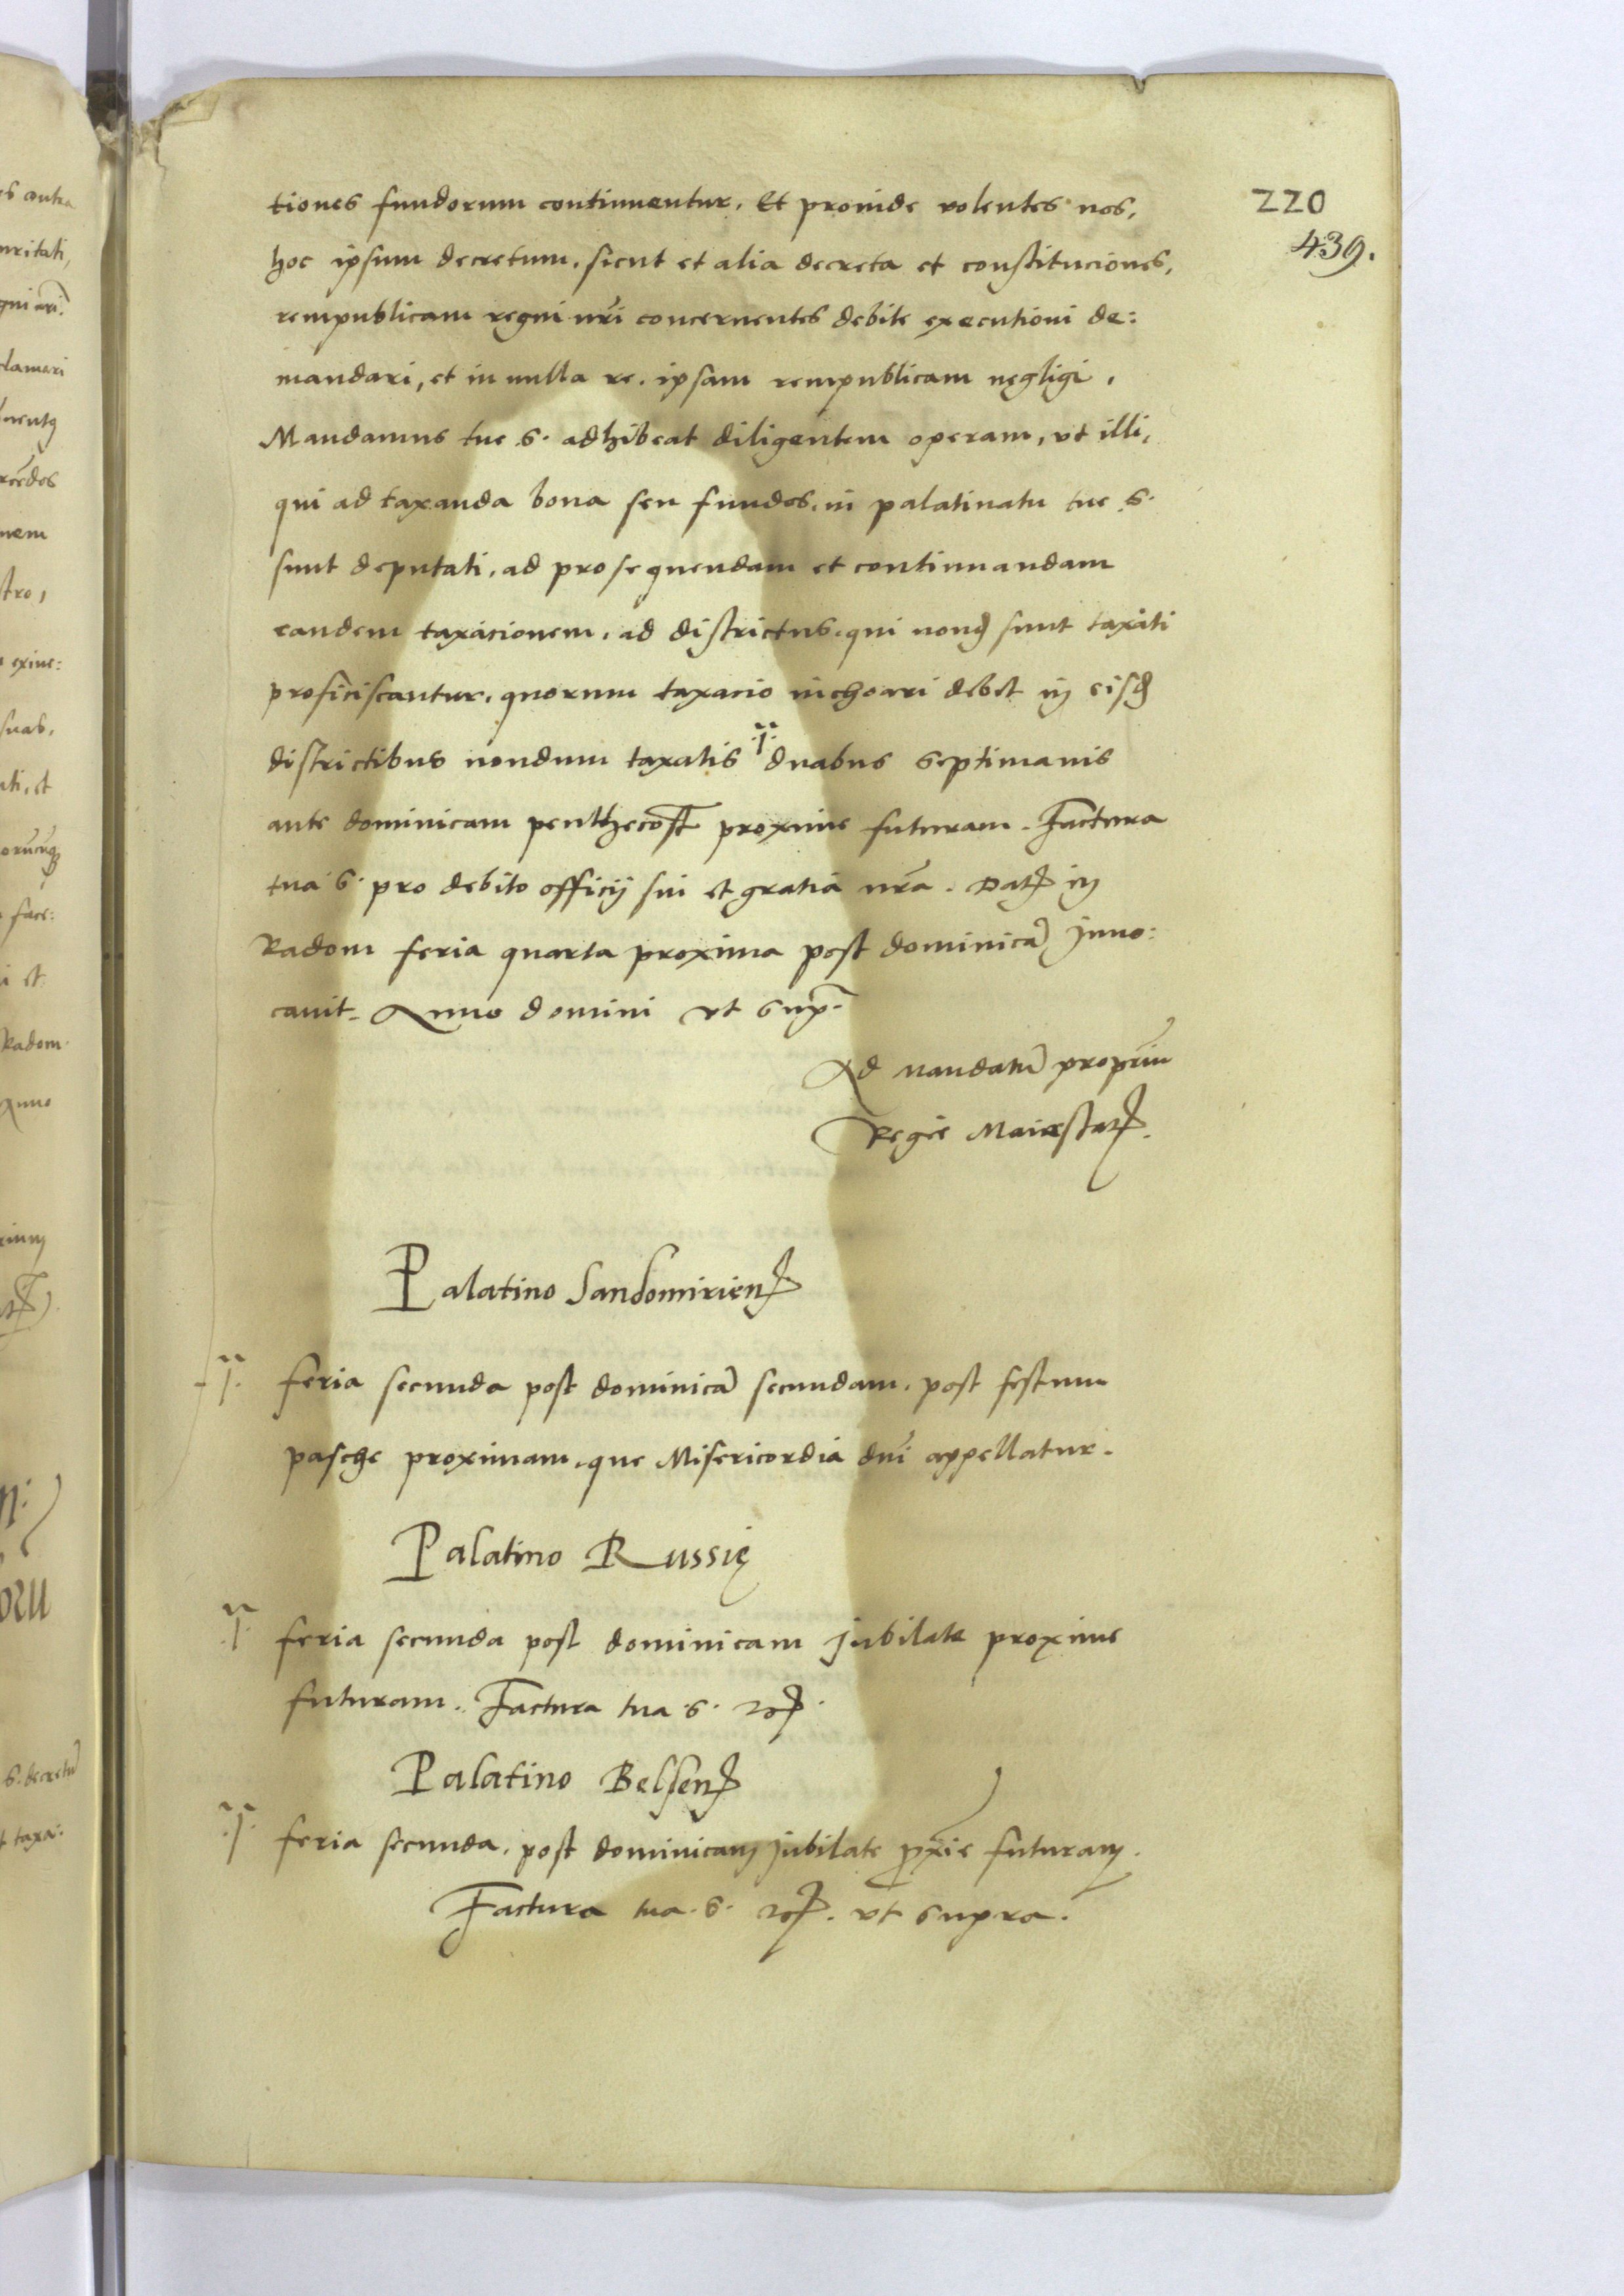 220
439.
tiones fundorum continuentur. Et proinde volentes nos,
hoc ipsum decretum, sicut et alia decreta et constituciones,
rempublicam regni nr̃i concernentes debite executioni de:
mandari, et in nulla re, ipsam rempublicam negligi,
Mandamus tue S. adhibeat diligentem operam, vt illi,
qui ad taxanda bona seu fundos, in palatinatu tue S.
sunt deputati, ad prosequendam et continuandam
eandem taxacionem, ad districtus, qui nond sunt taxati
proficiscantur, quorum taxacio inchoari debet in eisd
districtibus nondum taxatis duabus septimanis
ante dominicam penthecost proxime futuram. Factura
tua S. pro debito officij sui et gratia nr̃a. Dat in
Radom feria quarta proxima post dominicā Inuo:
cauit. Anno domini vt supr.
Ad mandatū propriū
Regie Maiestat.
Palatino Sandomirien
feria secunda post dominicā secundam, post festum
pasche proximam, que Misericordia dn̄i appellatur.
Palatino Russię
feria secunda post dominicam jubilate proxime
futuram. Factura tua S. etc.
Palatino Belsen
feria secunda, post dominicam jubilate pxīe futuram.
Factura tua S. etc. vt supra.